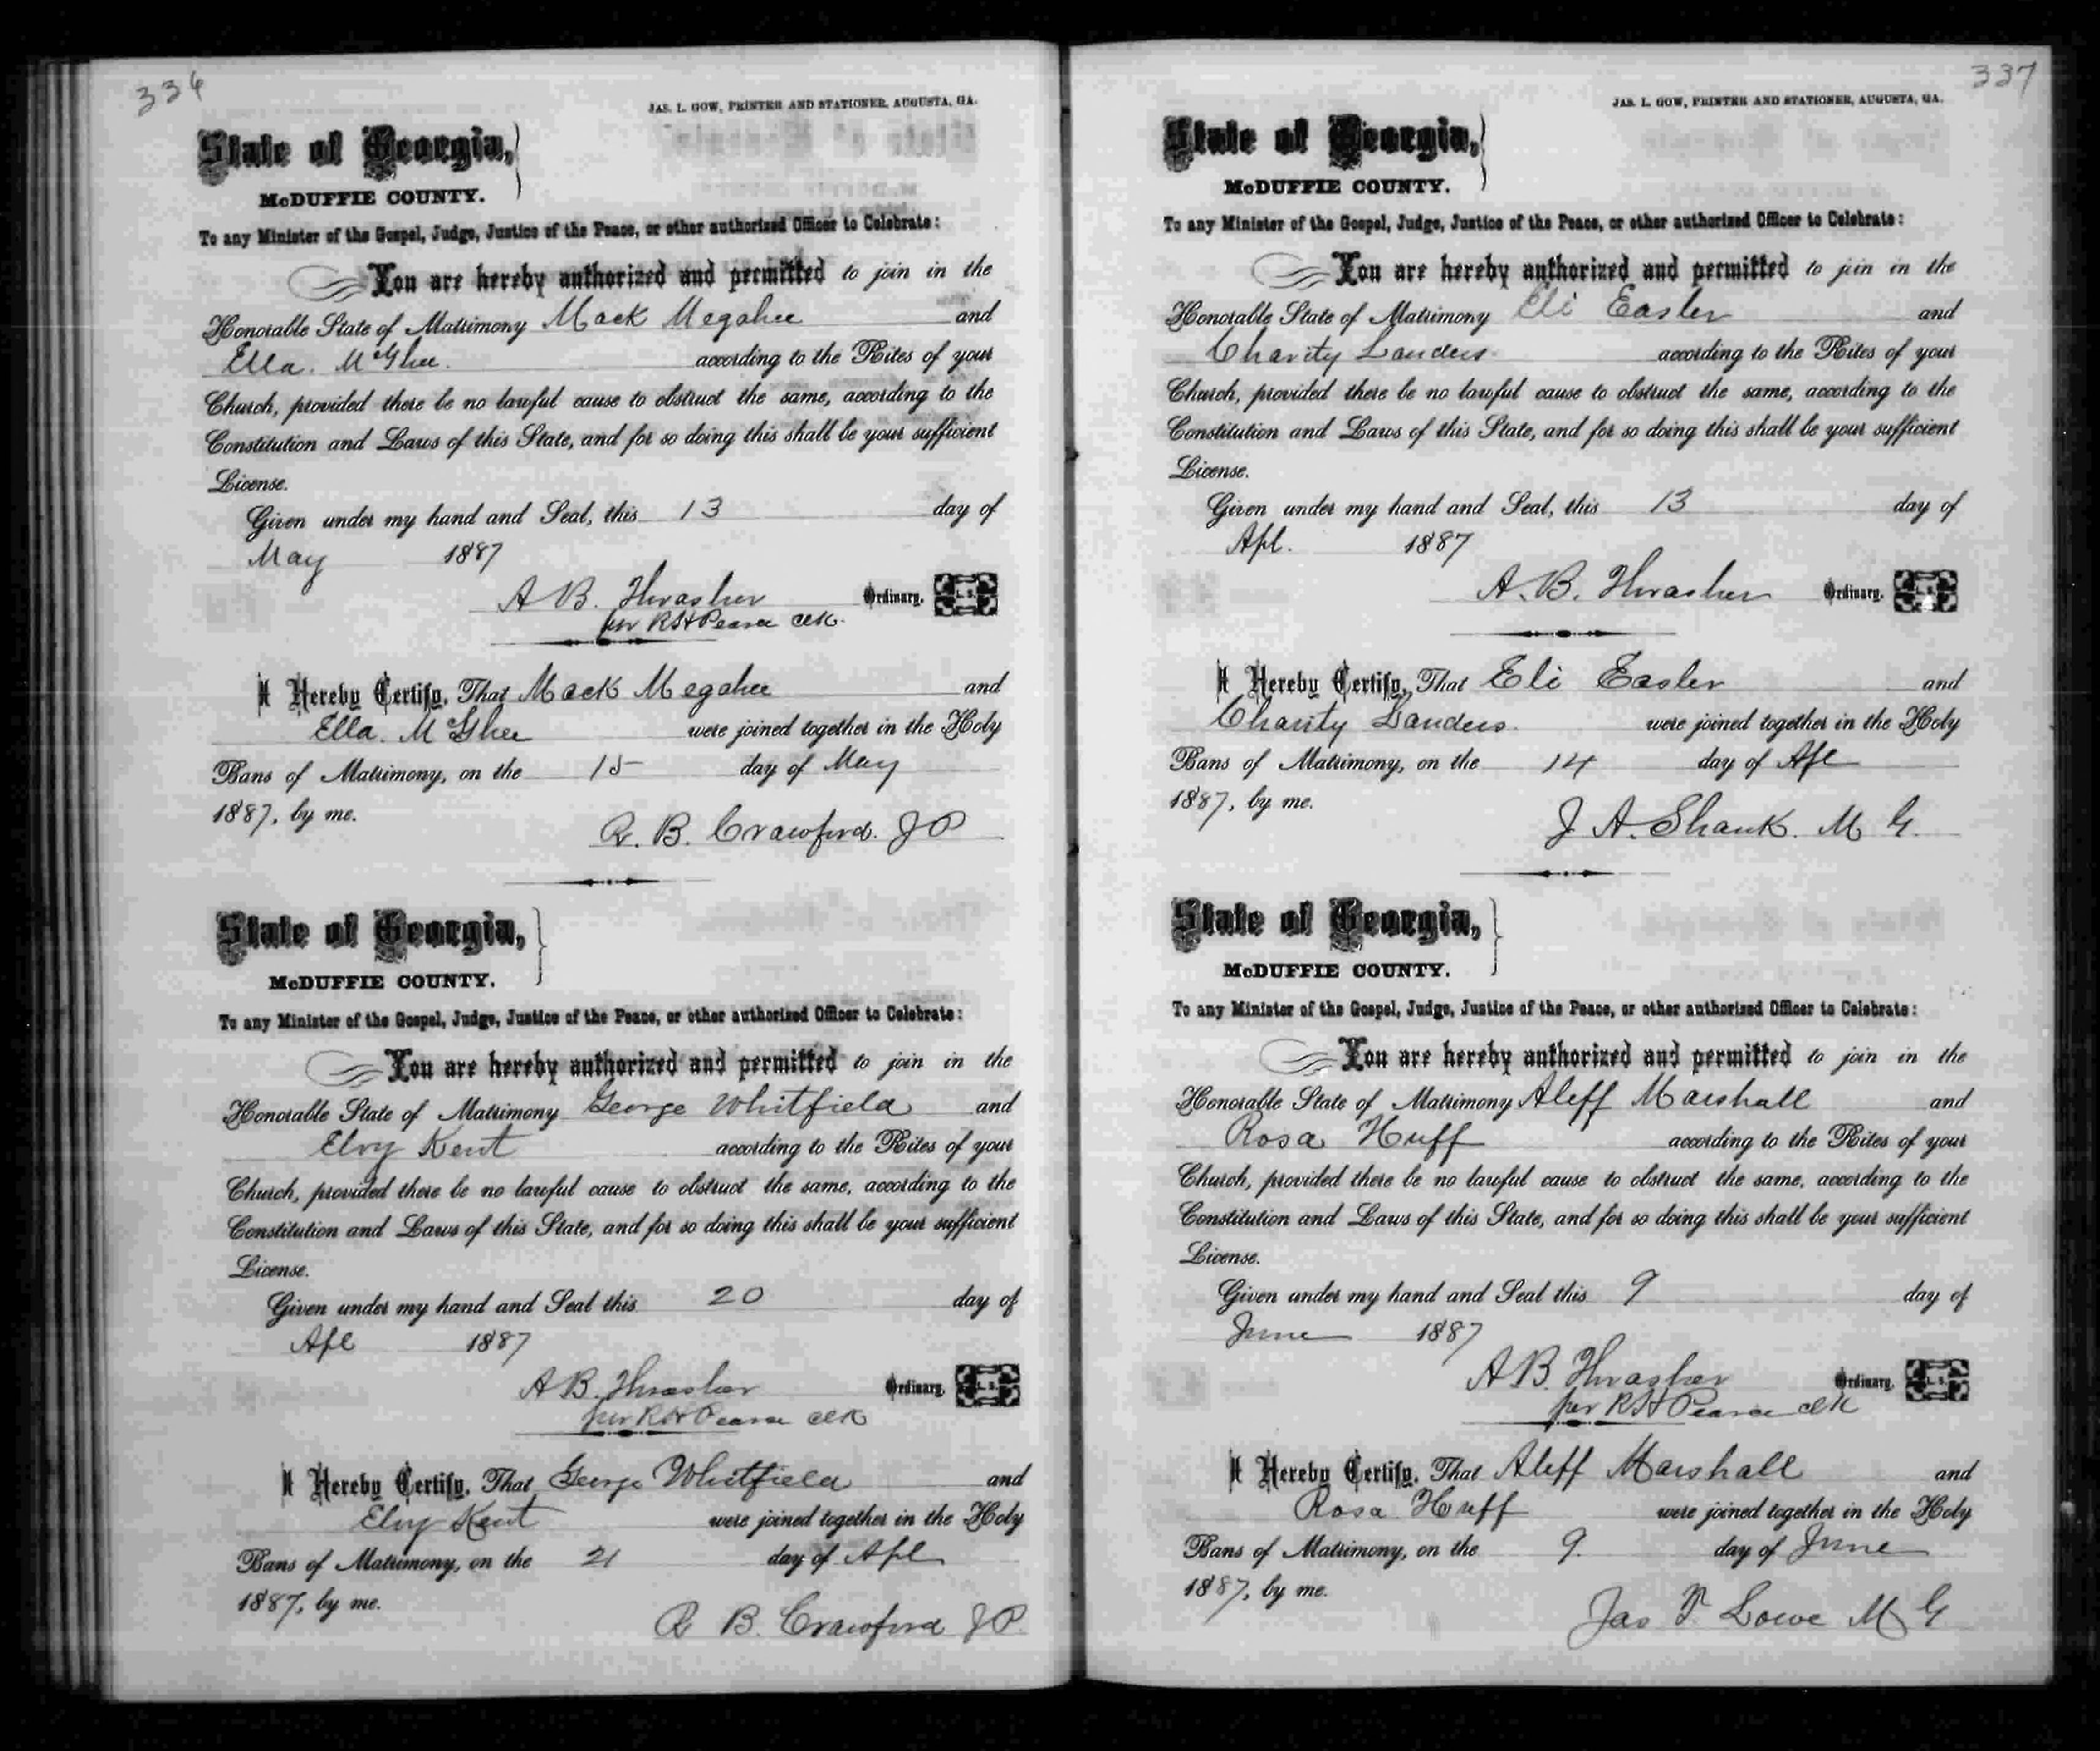 336
JAS. L. GOW, PRINTER AND STATIONER, AUGUSTA, GA.
State of Georgia,
McDUFFIE COUNTY.
To any Minister of the Gospel, Judge, Justice of the Peace, or other authorized Officer to Celebrate:
You are hereby authorized and permitted to join in the
Honorable State of Matrimony Mack Megahee and
Ella. McGhee. according to the Rites of your
Church, provided there be no lawful cause to obstruct the same, according to the
Constitution and Laws of this State, and for so doing this shall be your sufficient
License.
Given under my hand and Seal, this 13 day of
May 1887
A B. Thrasher Ordinary. L. S.
per R H Pearce Clk.
I Hereby Certify, That Mack Megahee and
Ella. McGhee were joined together in the Holy
Bans of Matrimony, on the 15 day of May
1887, by me.
R. B. Crawford. J P
State of Georgia,
McDUFFIE COUNTY.
To any Minister of the Gospel, Judge, Justice of the Peace, or other authorized Officer to Celebrate:
You are hereby authorized and permitted to join in the
Honorable State of Matrimony George Whitfield and
Elvy Kent according to the Rites of your
Church, provided there be no lawful cause to obstruct the same, according to the
Constitution and Laws of this State, and for so doing this shall be your sufficient
License.
Given under my hand and Seal this 20 day of
Apl 1887
A B. Thrasher Ordinary. L. S.
per R H Pearce Clk
I Hereby Certify, That George Whitfield and
Elvy Kent were joined together in the Holy
Bans of Matrimony, on the 21 day of Apl
1887, by me.
R B. Crawford J P.
337
JAS. L. GOW, PRINTER AND STATIONER, AUGUSTA, GA.
State of Georgia,
McDUFFIE COUNTY.
To any Minister of the Gospel, Judge, Justice of the Peace, or other authorized Officer to Celebrate:
You are hereby authorized and permitted to join in the
Honorable State of Matrimony Eli Easler and
Charity Landers. according to the Rites of your
Church, provided there be no lawful cause to obstruct the same, according to the
Constitution and Laws of this State, and for so doing this shall be your sufficient
License.
Given under my hand and Seal, this 13 day of
Apl. 1887
A. B. Thrasher Ordinary. L. S.
I Hereby Certify, That Eli Easler and
Charity Landers. were joined together in the Holy
Bans of Matrimony, on the 14 day of Apl
1887, by me.
J A. Shank. M G.
State of Georgia,
McDUFFIE COUNTY.
To any Minister of the Gospel, Judge, Justice of the Peace, or other authorized Officer to Celebrate:
You are hereby authorized and permitted to join in the
Honorable State of Matrimony Aleff Marshall and
Rosa Huff according to the Rites of your
Church, provided there be no lawful cause to obstruct the same, according to the
Constitution and Laws of this State, and for so doing this shall be your sufficient
License.
Given under my hand and Seal this 9 day of
June 1887
A B. Thrasher Ordinary. L. S.
per R H Pearce Clk
I Hereby Certify, That Aleff Marshall and
Rosa Huff were joined together in the Holy
Bans of Matrimony, on the 9. day of June
1887, by me.
Jas P. Lowe M G